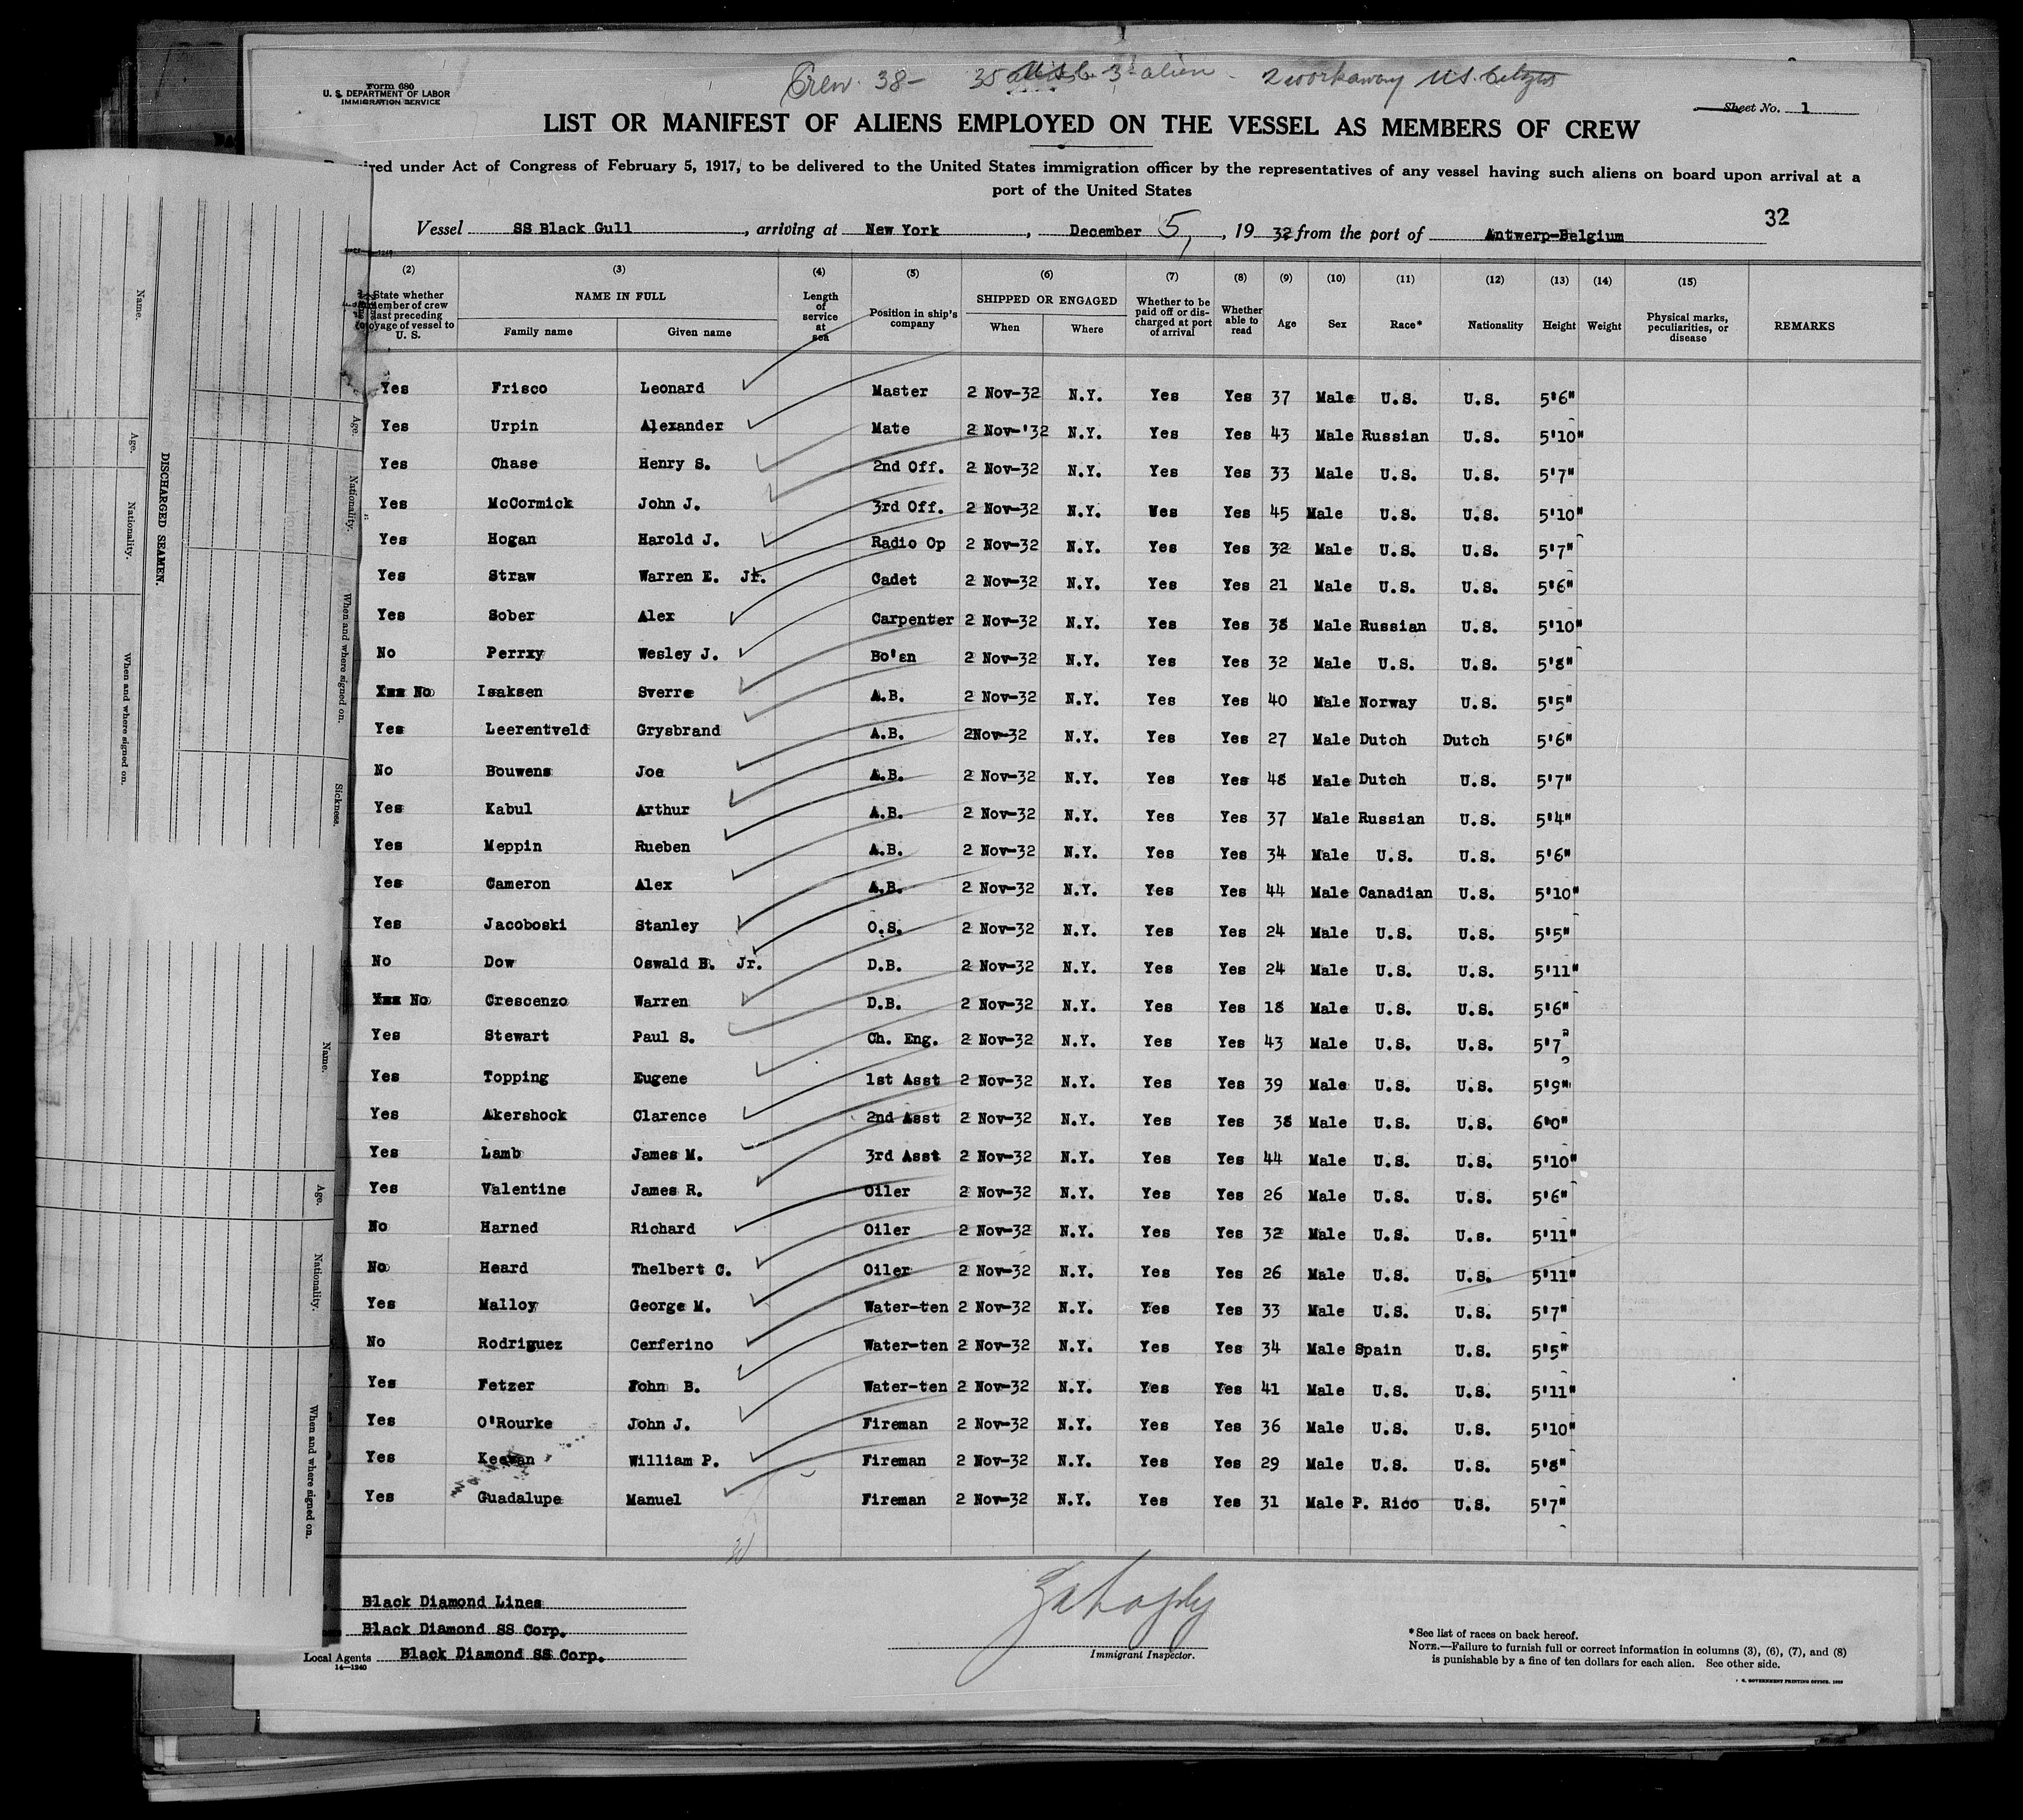 Form 680
U. S. DEPARTMENT OF LABOR
IMMIGRATION SERVICE
Crew. 38 - 35 3 alien - 2 workaway U.S. Citizens
Sheet No. 1
LIST OR MANIFEST OF ALIENS EMPLOYED ON THE VESSEL AS MEMBERS OF CREW
red under Act of Congress of February 5, 1917, to be delivered to the United States immigration officer by the representatives of any vessel having such aliens on board upon arrival at a
port of the United States
32
Vessel SS Black Gull, arriving at New York, December 5, 1932 from the port of Antwerp-Belgium
(2) (3) (4) (5) (6) (7) (8) (9) (10) (11) (12) (13) (14) (15)
State whether member of crew last preceding voyage of vessel to U. S. NAME IN FULL Family name Given name Length of service at sea Position in ship's company SHIPPED OR ENGAGED When Where Whether to be paid off or discharged at port of arrival Whether able to read Age Sex Race* Nationality Height Weight Physical marks, peculiarities, or disease REMARKS
Yes Frisco Leonard Master 2 Nov-32 N.Y. Yes Yes 37 Male U.S. U.S. 5'6"
Yes Urpin Alexander Mate 2 Nov-'32 N.Y. Yes Yes 43 Male Russian U.S. 5'10"
Yes Chase Henry S. 2nd Off. 2 Nov-32 N.Y. Yes Yes 33 Male U.S. U.S. 5'7"
Yes McCormick John J. 3rd Off. 2 Nov-32 N.Y. Wes Yes 45 Male U.S. U.S. 5'10"
Yes Hogan Harold J. Radio Op 2 Nov-32 N.Y. Yes Yes 32 Male U.S. U.S. 5'7"
Yes Straw Warren E. Jr. Cadet 2 Nov-32 N.Y. Yes Yes 21 Male U.S. U.S. 5'6"
Yes Sober Alex Carpenter 2 Nov-32 N.Y. Yes Yes 38 Male Russian U.S. 5'10"
No Perrxy Wesley J. Bo'sn 2 Nov-32 N.Y. Yes Yes 32 Male U.S. U.S. 5'8"
No Isaksen Sverre A.B. 2 Nov-32 N.Y. Yes Yes 40 Male Norway U.S. 5'5"
Yes Leerentveld Grysbrand A.B. 2Nov-32 N.Y. Yes Yes 27 Male Dutch Dutch 5'6"
No Bouwens Joe A.B. 2 Nov-32 N.Y. Yes Yes 48 Male Dutch U.S. 5'7"
Yes Kabul Arthur A.B. 2 Nov-32 N.Y. Yes Yes 37 Male Russian U.S. 5'4"
Yes Meppin Rueben A.B. 2 Nov-32 N.Y. Yes Yes 34 Male U.S. U.S. 5'6"
Yes Cameron Alex A.B. 2 Nov-32 N.Y. Yes Yes 44 Male Canadian U.S. 5'10"
Yes Jacoboski Stanley O.S. 2 Nov-32 N.Y. Yes Yes 24 Male U.S. U.S. 5'5"
No Dow Oswald B. Jr. D.B. 2 Nov-32 N.Y. Yes Yes 24 Male U.S. U.S. 5'11"
No Crescenzo Warren D.B. 2 Nov-32 N.Y. Yes Yes 18 Male U.S. U.S. 5'6"
Yes Stewart Paul S. Ch. Eng. 2 Nov-32 N.Y. Yes Yes 43 Male U.S. U.S. 5'7"
Yes Topping Eugene 1st Asst 2 Nov-32 N.Y. Yes Yes 39 Male U.S. U.S. 5'9"
Yes Akershock Clarence 2nd Asst 2 Nov-32 N.Y. Yes Yes 38 Male U.S. U.S. 6'0"
Yes Lamb James M. 3rd Asst 2 Nov-32 N.Y. Yes Yes 44 Male U.S. U.S. 5'10"
Yes Valentine James R. Oiler 2 Nov-32 N.Y. Yes Yes 26 Male U.S. U.S. 5'6"
No Harned Richard Oiler 2 Nov-32 N.Y. Yes Yes 32 Male U.S. U.s. 5'11"
No Heard Thelbert C. Oiler 2 Nov-32 N.Y. Yes Yes 26 Male U.S. U.S. 5'11"
Yes Malloy George M. Water-ten 2 Nov-32 N.Y. Yes Yes 33 Male U.S. U.S. 5'7"
No Rodriguez Cerferino Water-ten 2 Nov-32 N.Y. Yes Yes 34 Male Spain U.S. 5'5"
Yes Fetzer John B. Water-ten 2 Nov-32 N.Y. Yes Yes 41 Male U.S. U.S. 5'11"
Yes O'Rourke John J. Fireman 2 Nov-32 N.Y. Yes Yes 36 Male U.S. U.S. 5'10"
Yes Keevan William P. Fireman 2 Nov-32 N.Y. Yes Yes 29 Male U.S. U.S. 5'8"
Yes Guadalupe Manuel Fireman 2 Nov-32 N.Y. Yes Yes 31 Male P. Rico U.S. 5'7"
Black Diamond Lines
Black Diamond SS Corp.
Local Agents Black Diamond SS Corp.
14-1240
Immigrant Inspector.
*See list of races on back hereof.
NOTE.—Failure to furnish full or correct information in columns (3), (6), (7), and (8)
is punishable by a fine of ten dollars for each alien. See other side.
GOVERNMENT PRINTING OFFICE
DISCHARGED SEAMEN.
Name.
Age.
Nationality.
When and where signed on.
Age.
Nationality.
When and where signed on.
Sickness.
Name.
Age.
Nationality.
When and where signed on.